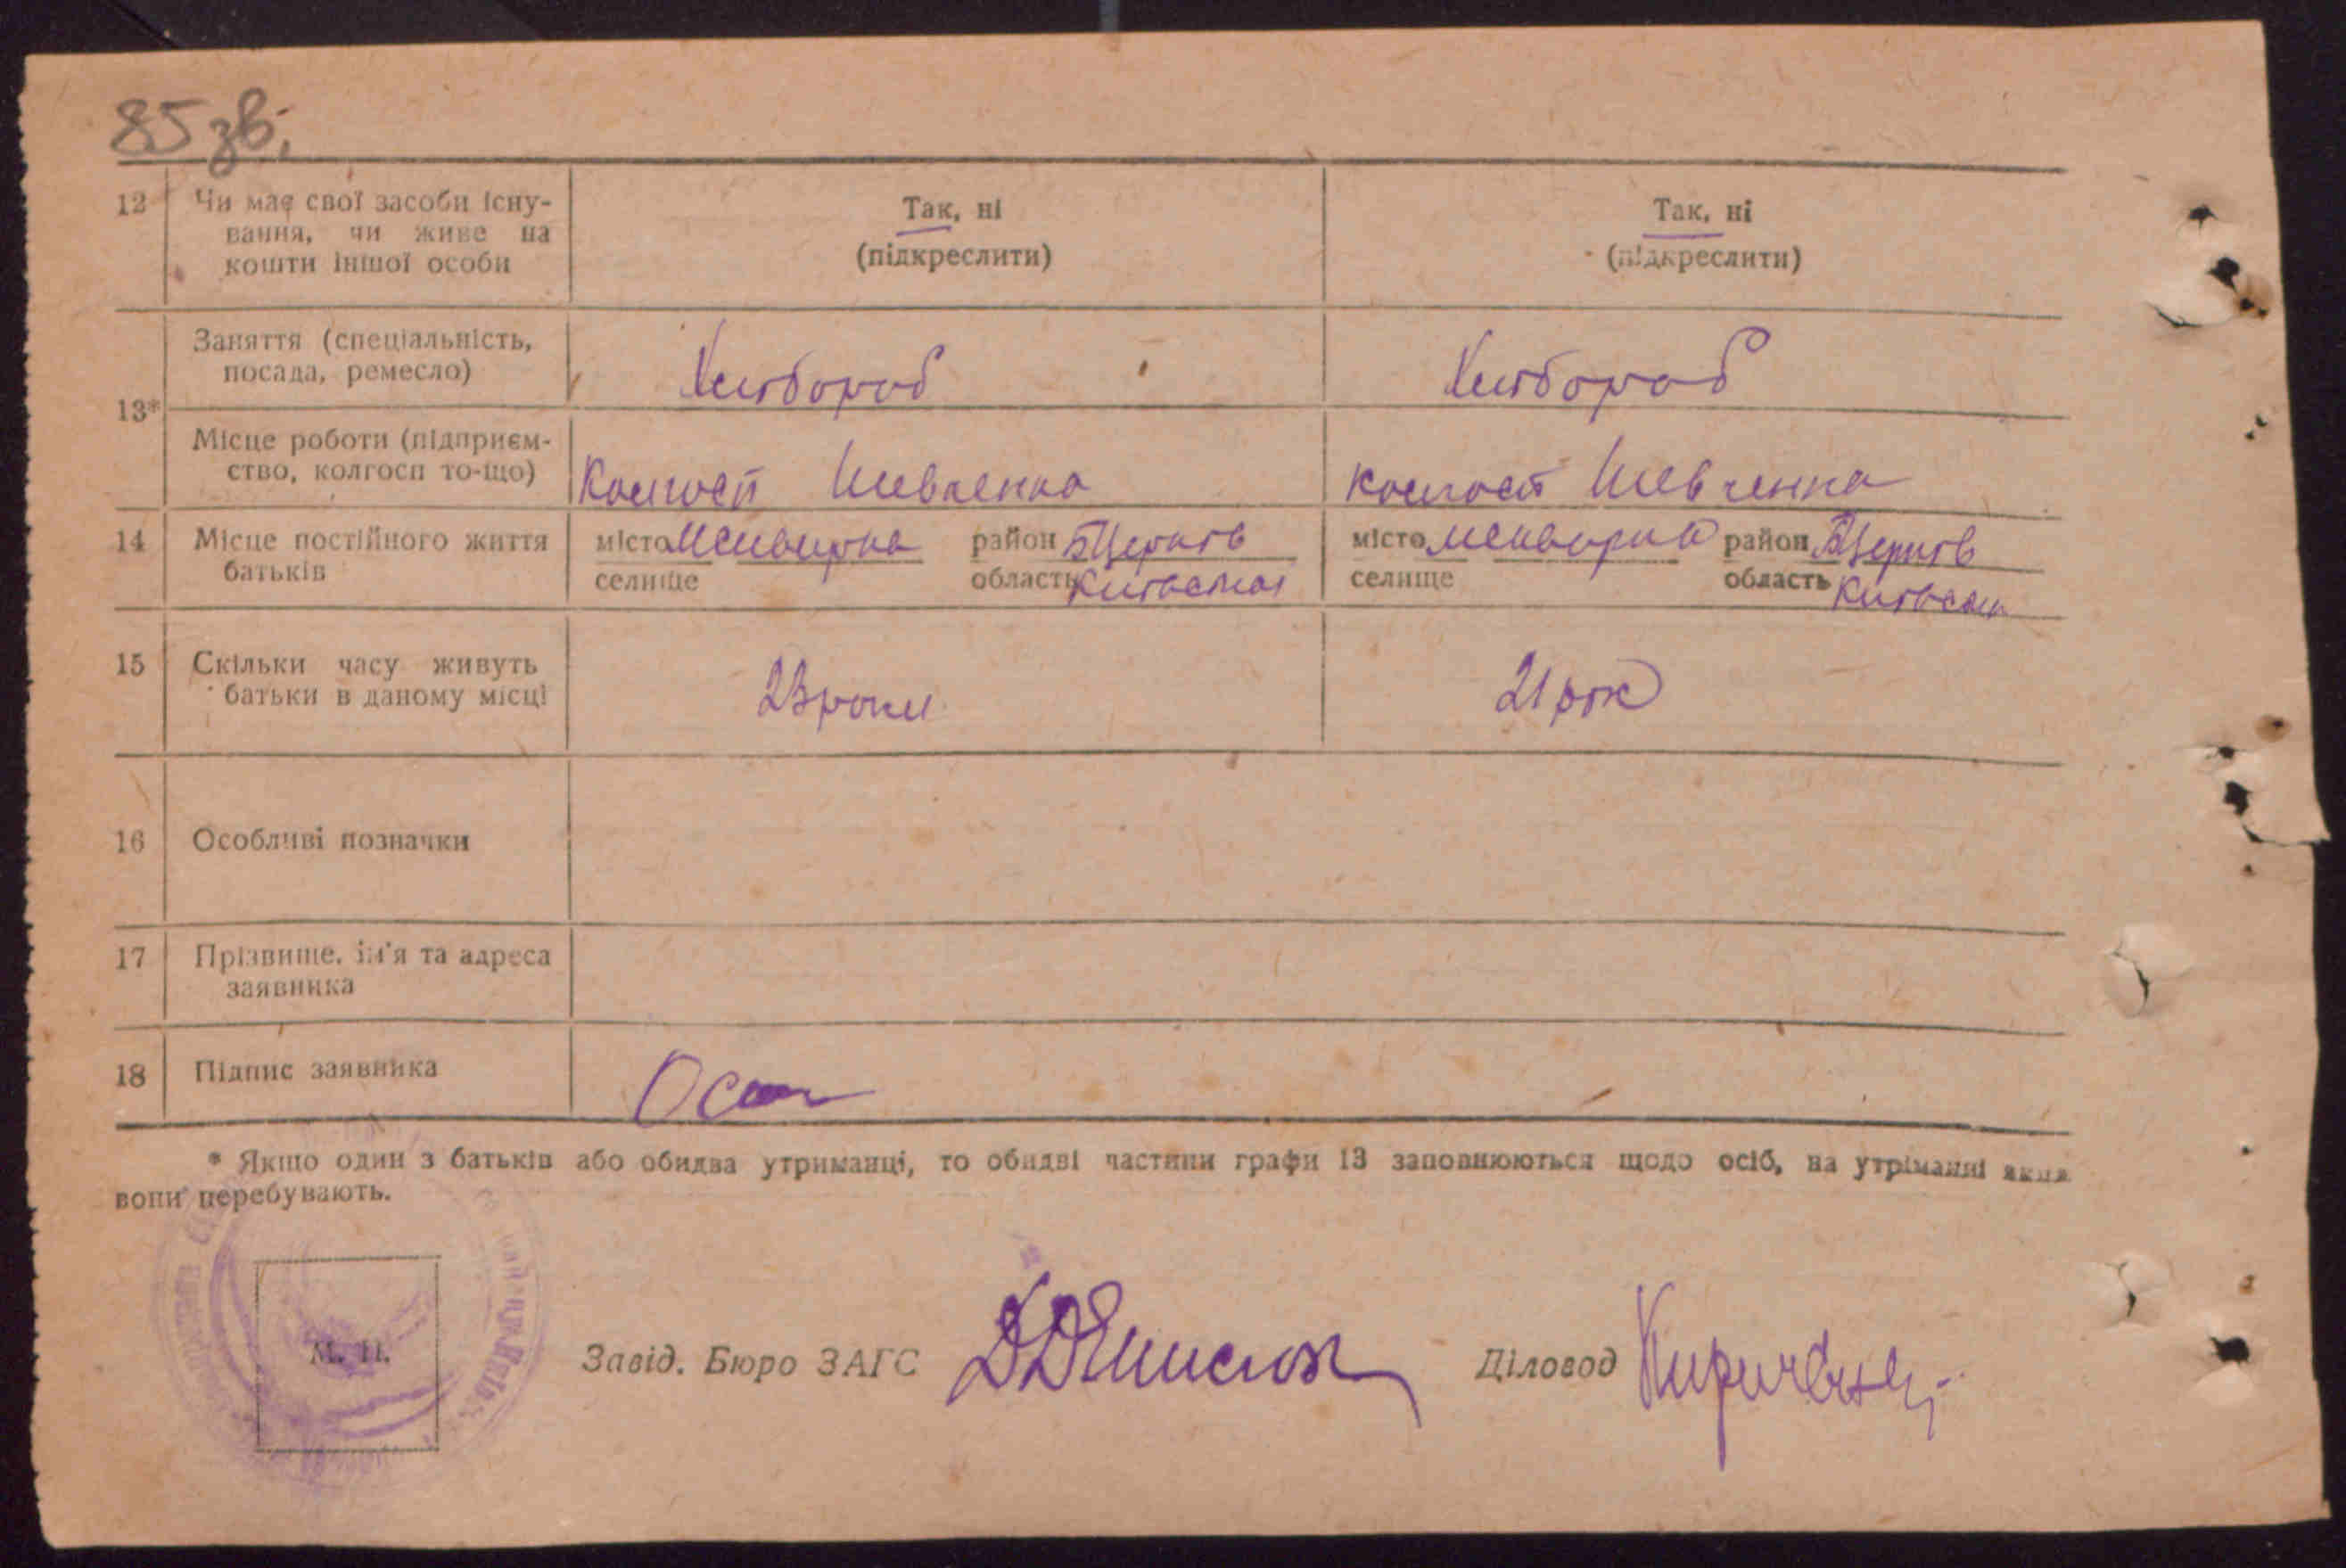 85 зв.
12 Чи має свої засоби існу- Так, ні Так, ні
вання, чи живе на (підкреслити) (підкреслити)
кошти іншої особи
Заняття (спеціальність, Хлібороб Хлібороб
посада, ремесло)
13*
Місце роботи (підприєм-
ство, колгосп то-що) Колгосп Шевченка колгосп Шевченка
14 Місце постійного життя місто район БЦерків місто район БЦерків
батьків селище область Київська селище область
15 Скільки часу живуть 23 роки 21 рік
батьки в даному місці
16 Особливі позначки
17 Прізвище, ім'я та адреса
заявника
18 Підпис заявника
* Якщо один з батьків або обидва утриманці, то обидві частини графи 13 заповнюються щодо осіб, на утріманні яких
вони перебувають.
М. П.
Завід. Бюро ЗАГС Діловод